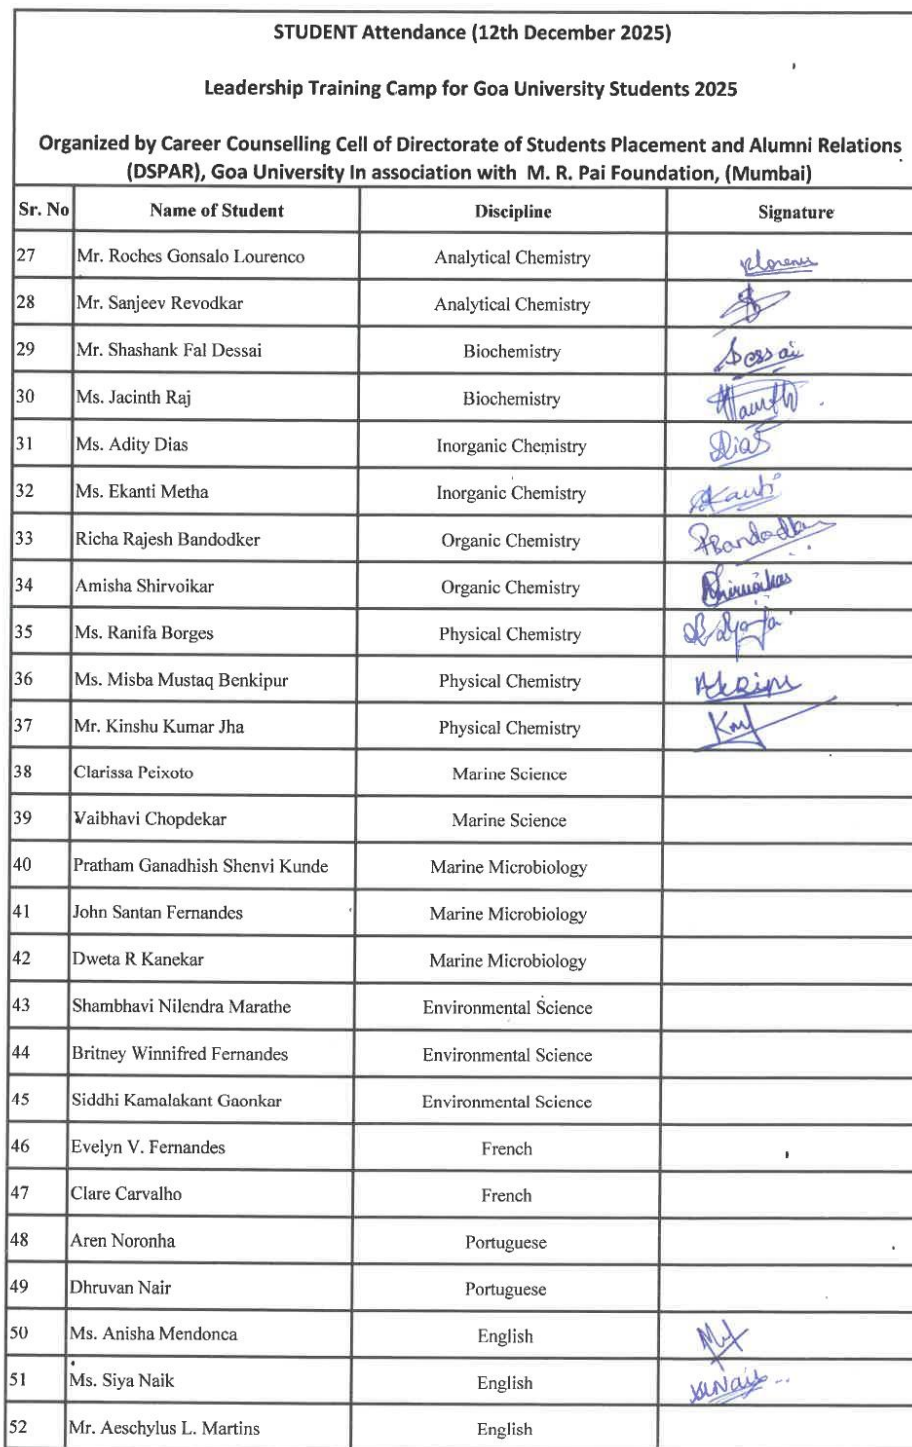 STUDENT Attendance (12th December 2025)
Leadership Training Camp for Goa University Students 2025
Organized by Career Counselling Cell of Directorate of Students Placement and Alumni Relations
(DSPAR), Goa University In association with M. R. Pai Foundation, (Mumbai)
Sr. No Name of Student Discipline Signature
27 Mr. Roches Gonsalo Lourenco Analytical Chemistry
28 Mr. Sanjeev Revodkar Analytical Chemistry
29 Mr. Shashank Fal Dessai Biochemistry Dessai
30 Ms. Jacinth Raj Biochemistry
31 Ms. Adity Dias Inorganic Chemistry Dias
32 Ms. Ekanti Metha Inorganic Chemistry
33 Richa Rajesh Bandodker Organic Chemistry
34 Amisha Shirvoikar Organic Chemistry
35 Ms. Ranifa Borges Physical Chemistry
36 Ms. Misba Mustaq Benkipur Physical Chemistry
37 Mr. Kinshu Kumar Jha Physical Chemistry
38 Clarissa Peixoto Marine Science
39 Vaibhavi Chopdekar Marine Science
40 Pratham Ganadhish Shenvi Kunde Marine Microbiology
41 John Santan Fernandes Marine Microbiology
42 Dweta R Kanekar Marine Microbiology
43 Shambhavi Nilendra Marathe Environmental Science
44 Britney Winnifred Fernandes Environmental Science
45 Siddhi Kamalakant Gaonkar Environmental Science
46 Evelyn V. Fernandes French
47 Clare Carvalho French
48 Aren Noronha Portuguese
49 Dhruvan Nair Portuguese
50 Ms. Anisha Mendonca English
51 Ms. Siya Naik English
52 Mr. Aeschylus L. Martins English